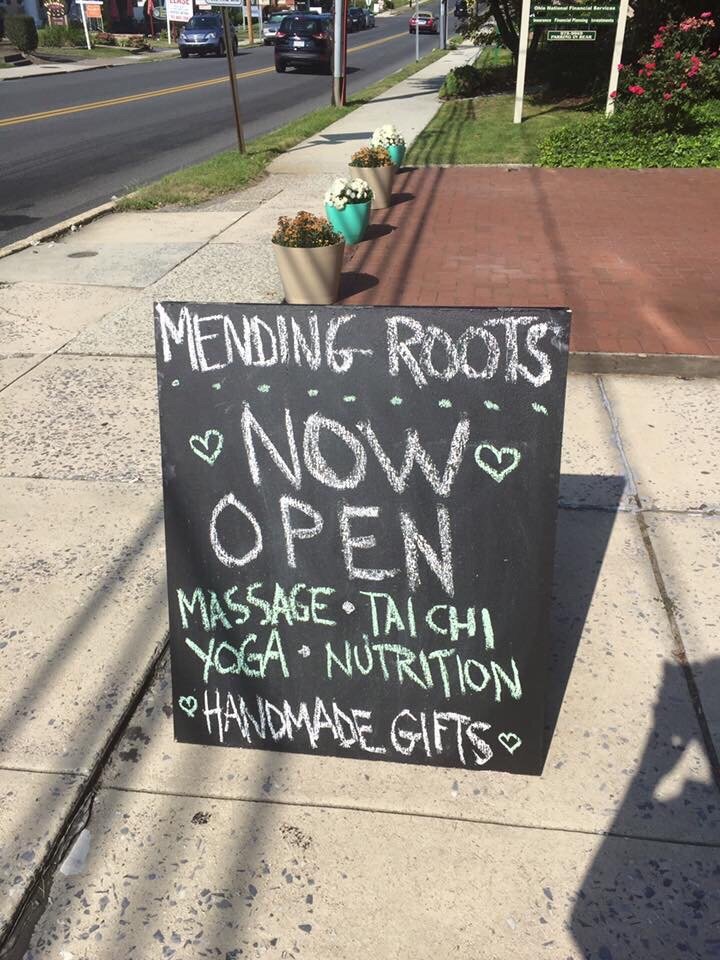 LEASE
Ohio National Financial Services
Insurance Financial Planning Investments
PARKING IN REAR
MENDING ROOTS
NOW
OPEN
MASSAGE • TAI CHI
YOGA • NUTRITION
HANDMADE GIFTS